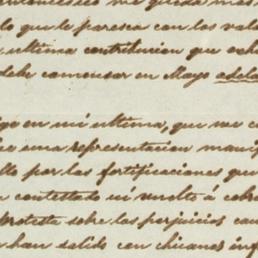 me queda mas
lo que le paresia con los val
ultima contribucion que ech
debe comensar en Mayo adela
go en mi ultima, que me c
ce una representacion mani
lto por las fortificaciones que
contestado ni vuelto á cobr
rotesta sobre los perjuicios cau
han salido con chicanas inf